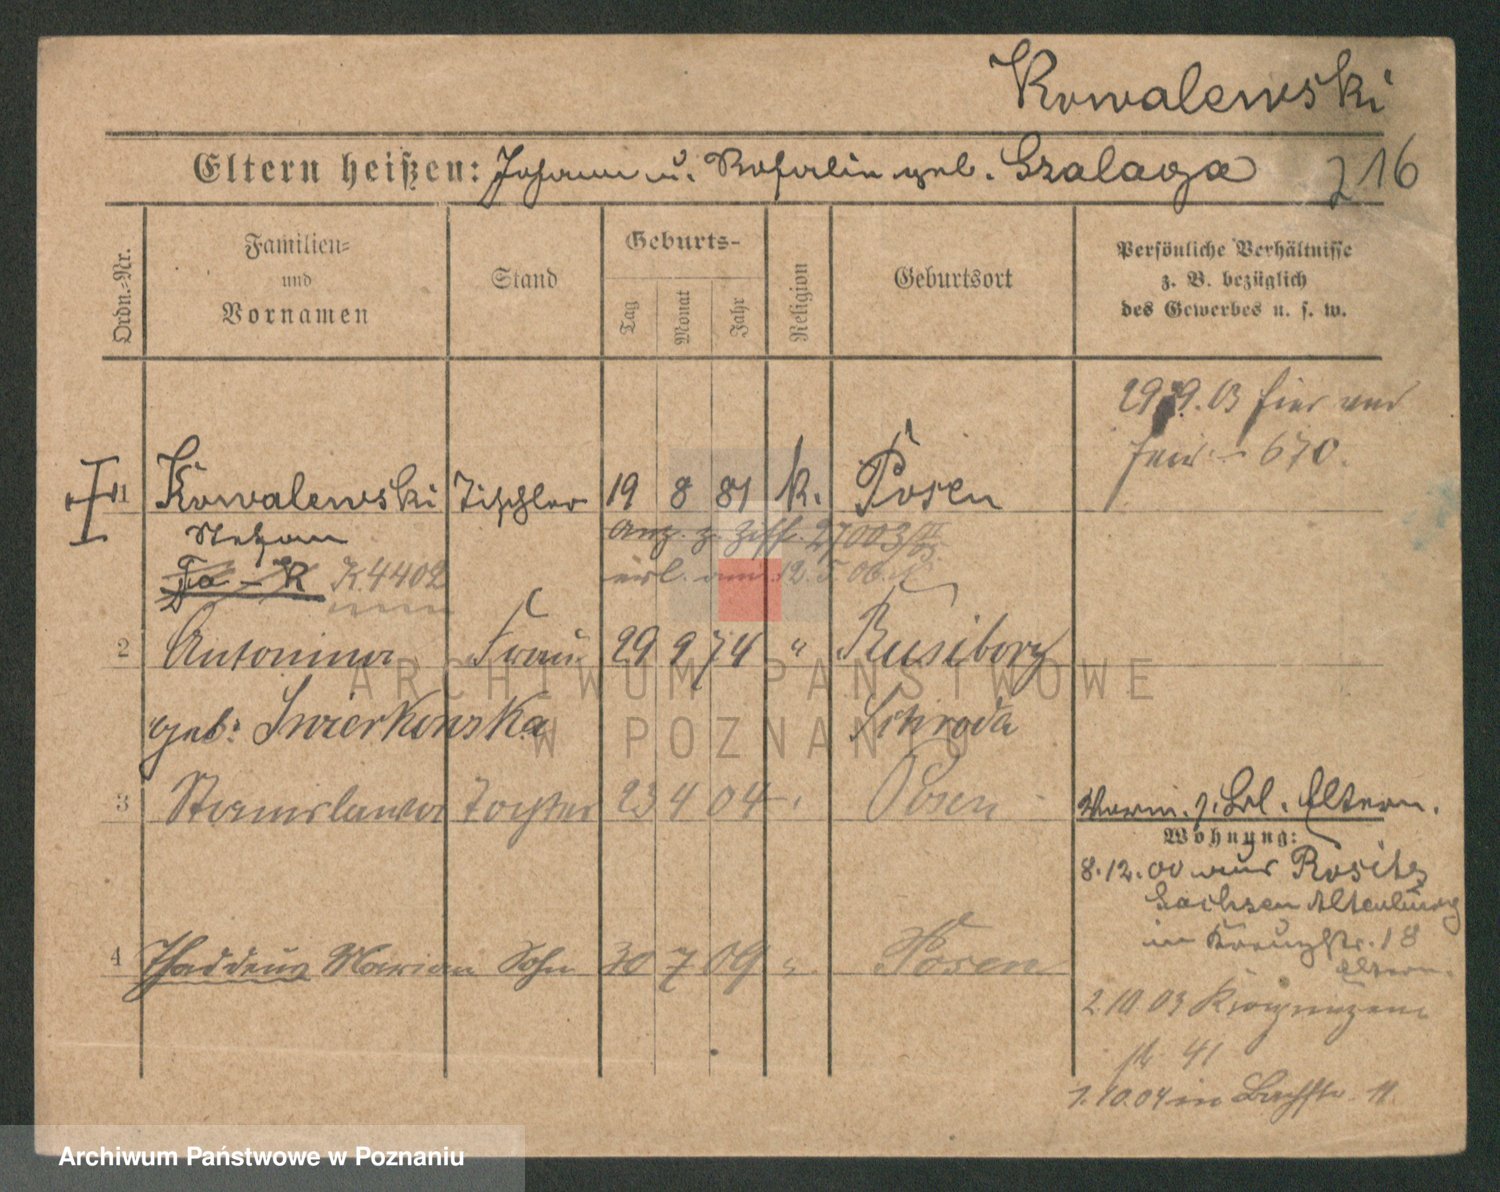 Kowalewski
Eltern heißen: Johann u. Rosalie geb. Szalaga
J 16
Ordn.-Nr.
Familien- und Vornamen
Stand
Geburts-
Tag
Monat
Jahr
Religion
Geburtsort
Persönliche Verhältnisse
z. B. bezüglich
des Gewerbes u. s. w.
29.9.03 hier
670.
1 Kowalewski Tischler 19 8 81 k. Posen
Stefan
Anz. z. Ziff. 27003/II
erl. am 12.5.06.
K 4402
2 Antonina Frau 29 9 74 " Rusiborz
geb: Swierkowska Schroda
3 Stanislawa Tochter 23 4 04 Posen
Vorm. s. Bl. Eltern.
Wohnung:
8.12.00 aus Rositz
Sachsen Altenburg
in Kreuzstr. 18
Eltern.
4 Thaddeus Marian Sohn 30 7 09 " Posen
2.10.03
41
1.10.04 in Bachstr. 11.
ARCHIWUM PAŃSTWOWE
W POZNANIU
Archiwum Państwowe w Poznaniu